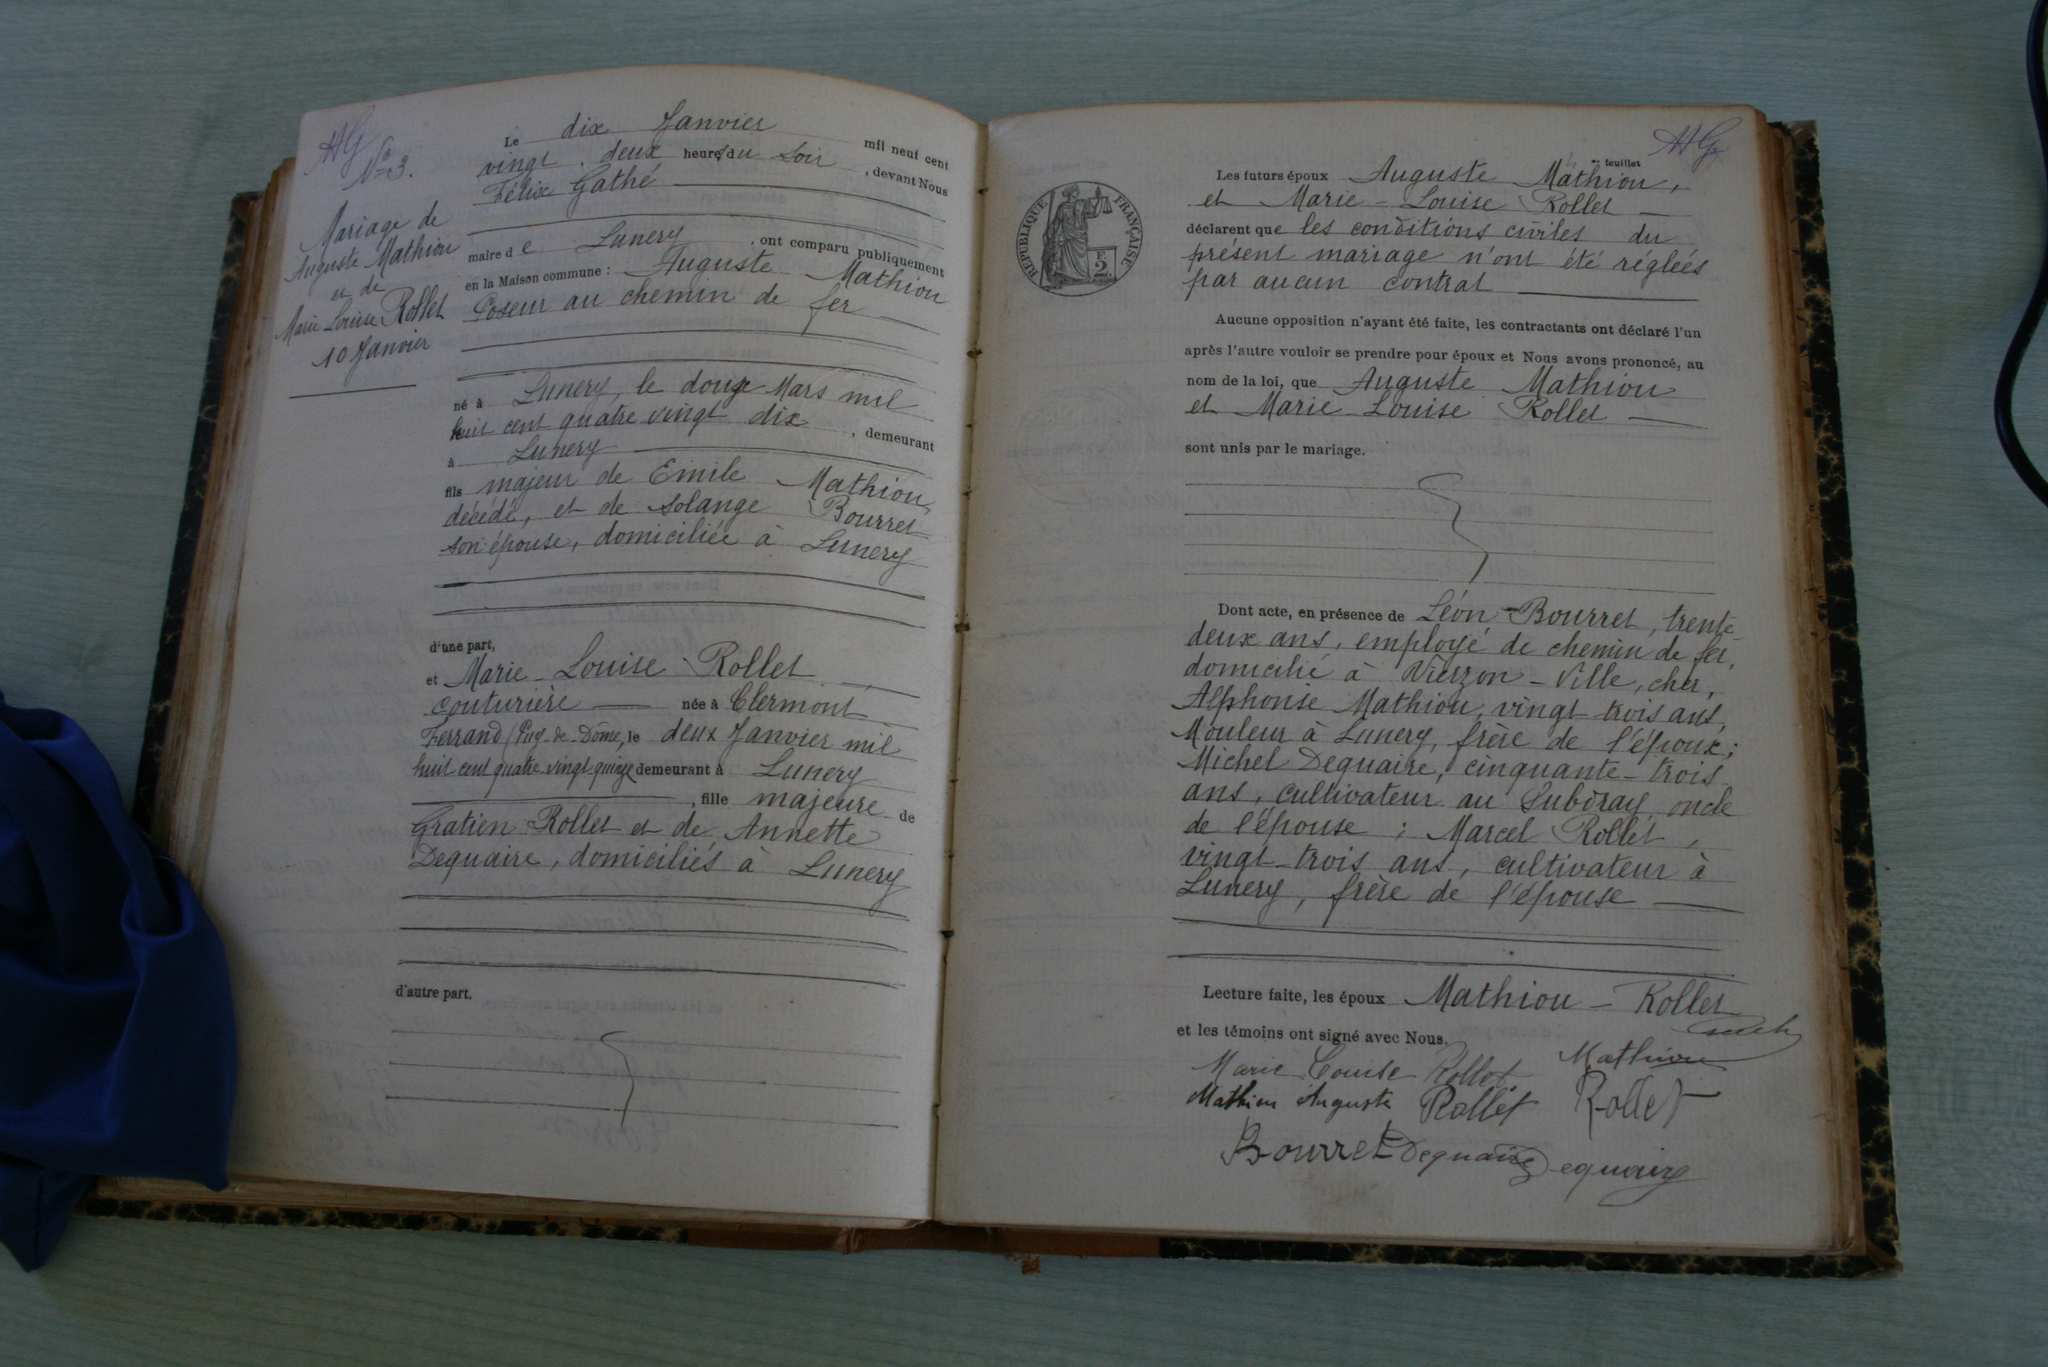 No 3.
Mariage de
Auguste Mathiou
et de
Marie Louise Rollet
10 Janvier
Le dix Janvier mil neuf cent
vingt . deux heures du soir , devant Nous
Félix Gathé
maire de Lunery , ont comparu publiquement
en la Maison commune : Auguste Mathiou
Poseur au chemin de fer
né à Lunery, le douze Mars mil
huit cent quatre vingt dix , demeurant
à Lunery
fils majeur de Emile Mathiou,
décédé, et de Solange Bourret
son épouse, domiciliée à Lunery
d'une part,
et Marie - Louise Rollet
couturière née à Clermont
Ferrand (Puy-de-Dôme, le deux Janvier mil
huit cent quatre vingt quinze demeurant à Lunery
, fille majeure de
Gratien Rollet et de Annette
Dequaire, domiciliés à Lunery
d'autre part.
feuillet
RÉPUBLIQUE FRANÇAISE
F.
2
Les futurs époux Auguste Mathiou,
et Marie - Louise Rollet
déclarent que les conditions civiles du
présent mariage n'ont été réglées
par aucun contrat
Aucune opposition n'ayant été faite, les contractants ont déclaré l'un
après l'autre vouloir se prendre pour époux et Nous avons prononcé, au
nom de la loi, que Auguste Mathiou
et Marie - Louise Rollet
sont unis par le mariage.
Dont acte, en présence de Léon Bourret, trente-
deux ans, employé de chemin de fer,
domicilié à Vierzon - Ville, cher,
Alphonse Mathiou, vingt trois ans,
Mouleur à Lunery, frère de l'époux ;
Michel Dequaire, cinquante-trois
ans, cultivateur au Subdray, oncle
de l'épouse ; Marcel Rollet,
vingt-trois ans, cultivateur à
Lunery, frère de l'épouse
Lecture faite, les époux Mathiou - Rollet
et les témoins ont signé avec Nous.
Marie Louise Rollet Mathiou
Mathiou Auguste Rollet Rollet
Bourret Dequaire Dequaire